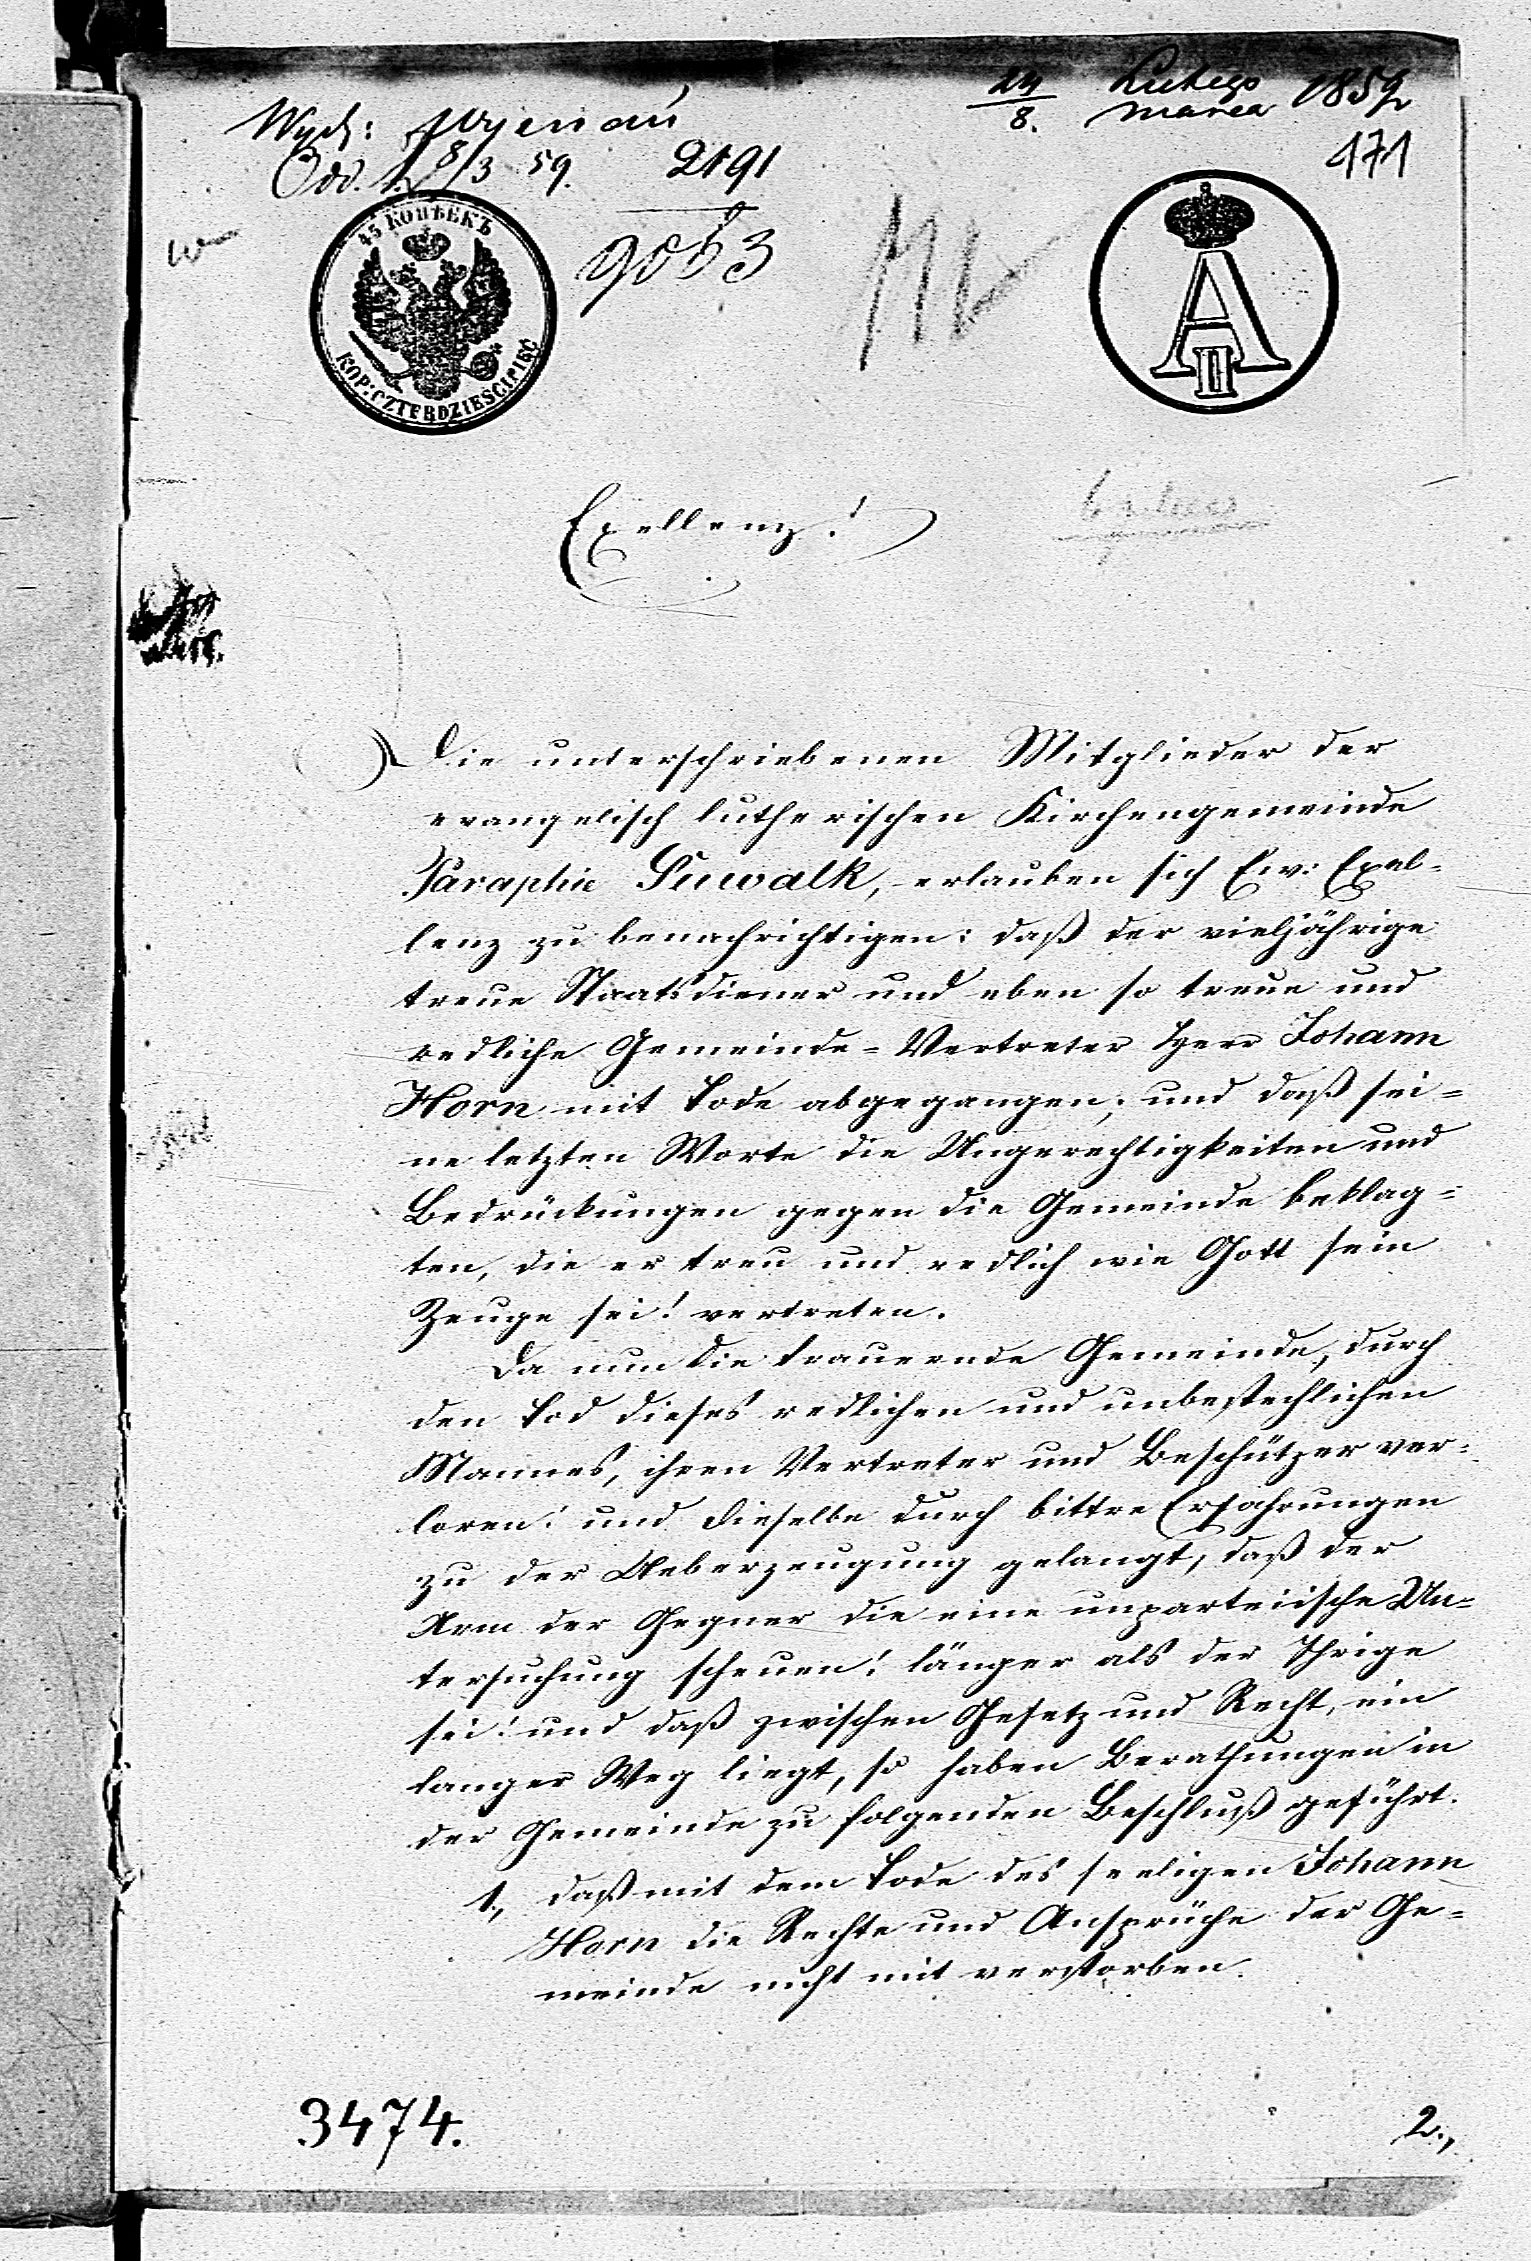 24/8. Lutego Marca 1859
171
Wydz:
Odd. 1. 8/3 59. 2191
9053
45 КОПѢЕКЪ
KOP: CZTERDZIEŚCI PIĘĆ
A II
Exellenz!
Die unterschriebenen Mitglieder der
evangelisch lutherischen Kirchengemeinde
Paraphie Suwalk, erlauben sich Ew: Exel-
lenz zu benachrichtigen: daß der vieljährige
treue Staatsdiener und eben so treue und
redliche Gemeinde-Vertreter Herr Johann
Horn mit Tode abgegangen; und daß sei-
ne letzten Worte die Ungerechtigkeiten und
Bedrückungen gegen die Gemeinde beklag-
ten, die er treu und redlich wie Gott sein
Zeuge sei! vertreten.
Da nun die trauernde Gemeinde, durch
den Tod dieses redlichen und unbestechlichen
Mannes, ihren Vertreter und Beschützer ver-
loren! und dieselbe durch bittre Erfahrungen
zu der Ueberzeugung gelangt, daß der
Arm der Gegner die eine unparteiische Un-
tersuchung scheuen! länger als der Ihrige
sei! und daß zwischen Gesetz und Recht, ein
langer Weg liegt, so haben Berathungen in
der Gemeinde zu folgenden Beschluß geführt.
1., daß mit dem Tode des seeligen Johann
Horn die Rechte und Ansprüche der Ge-
meinde nicht mit verstorben.
3474.
2.,